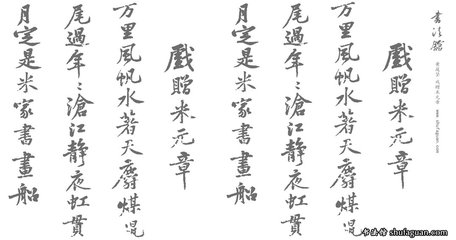 书法馆
戲贈米元章
万里風帆水著天麝煤鼠
尾過年〻滄江靜夜虹貫
月定是米家書畫船
戲贈米元章
万里風帆水著天麝煤鼠
尾過年〻滄江靜夜虹貫
月定是米家書畫船
书法馆 shufaguan.com